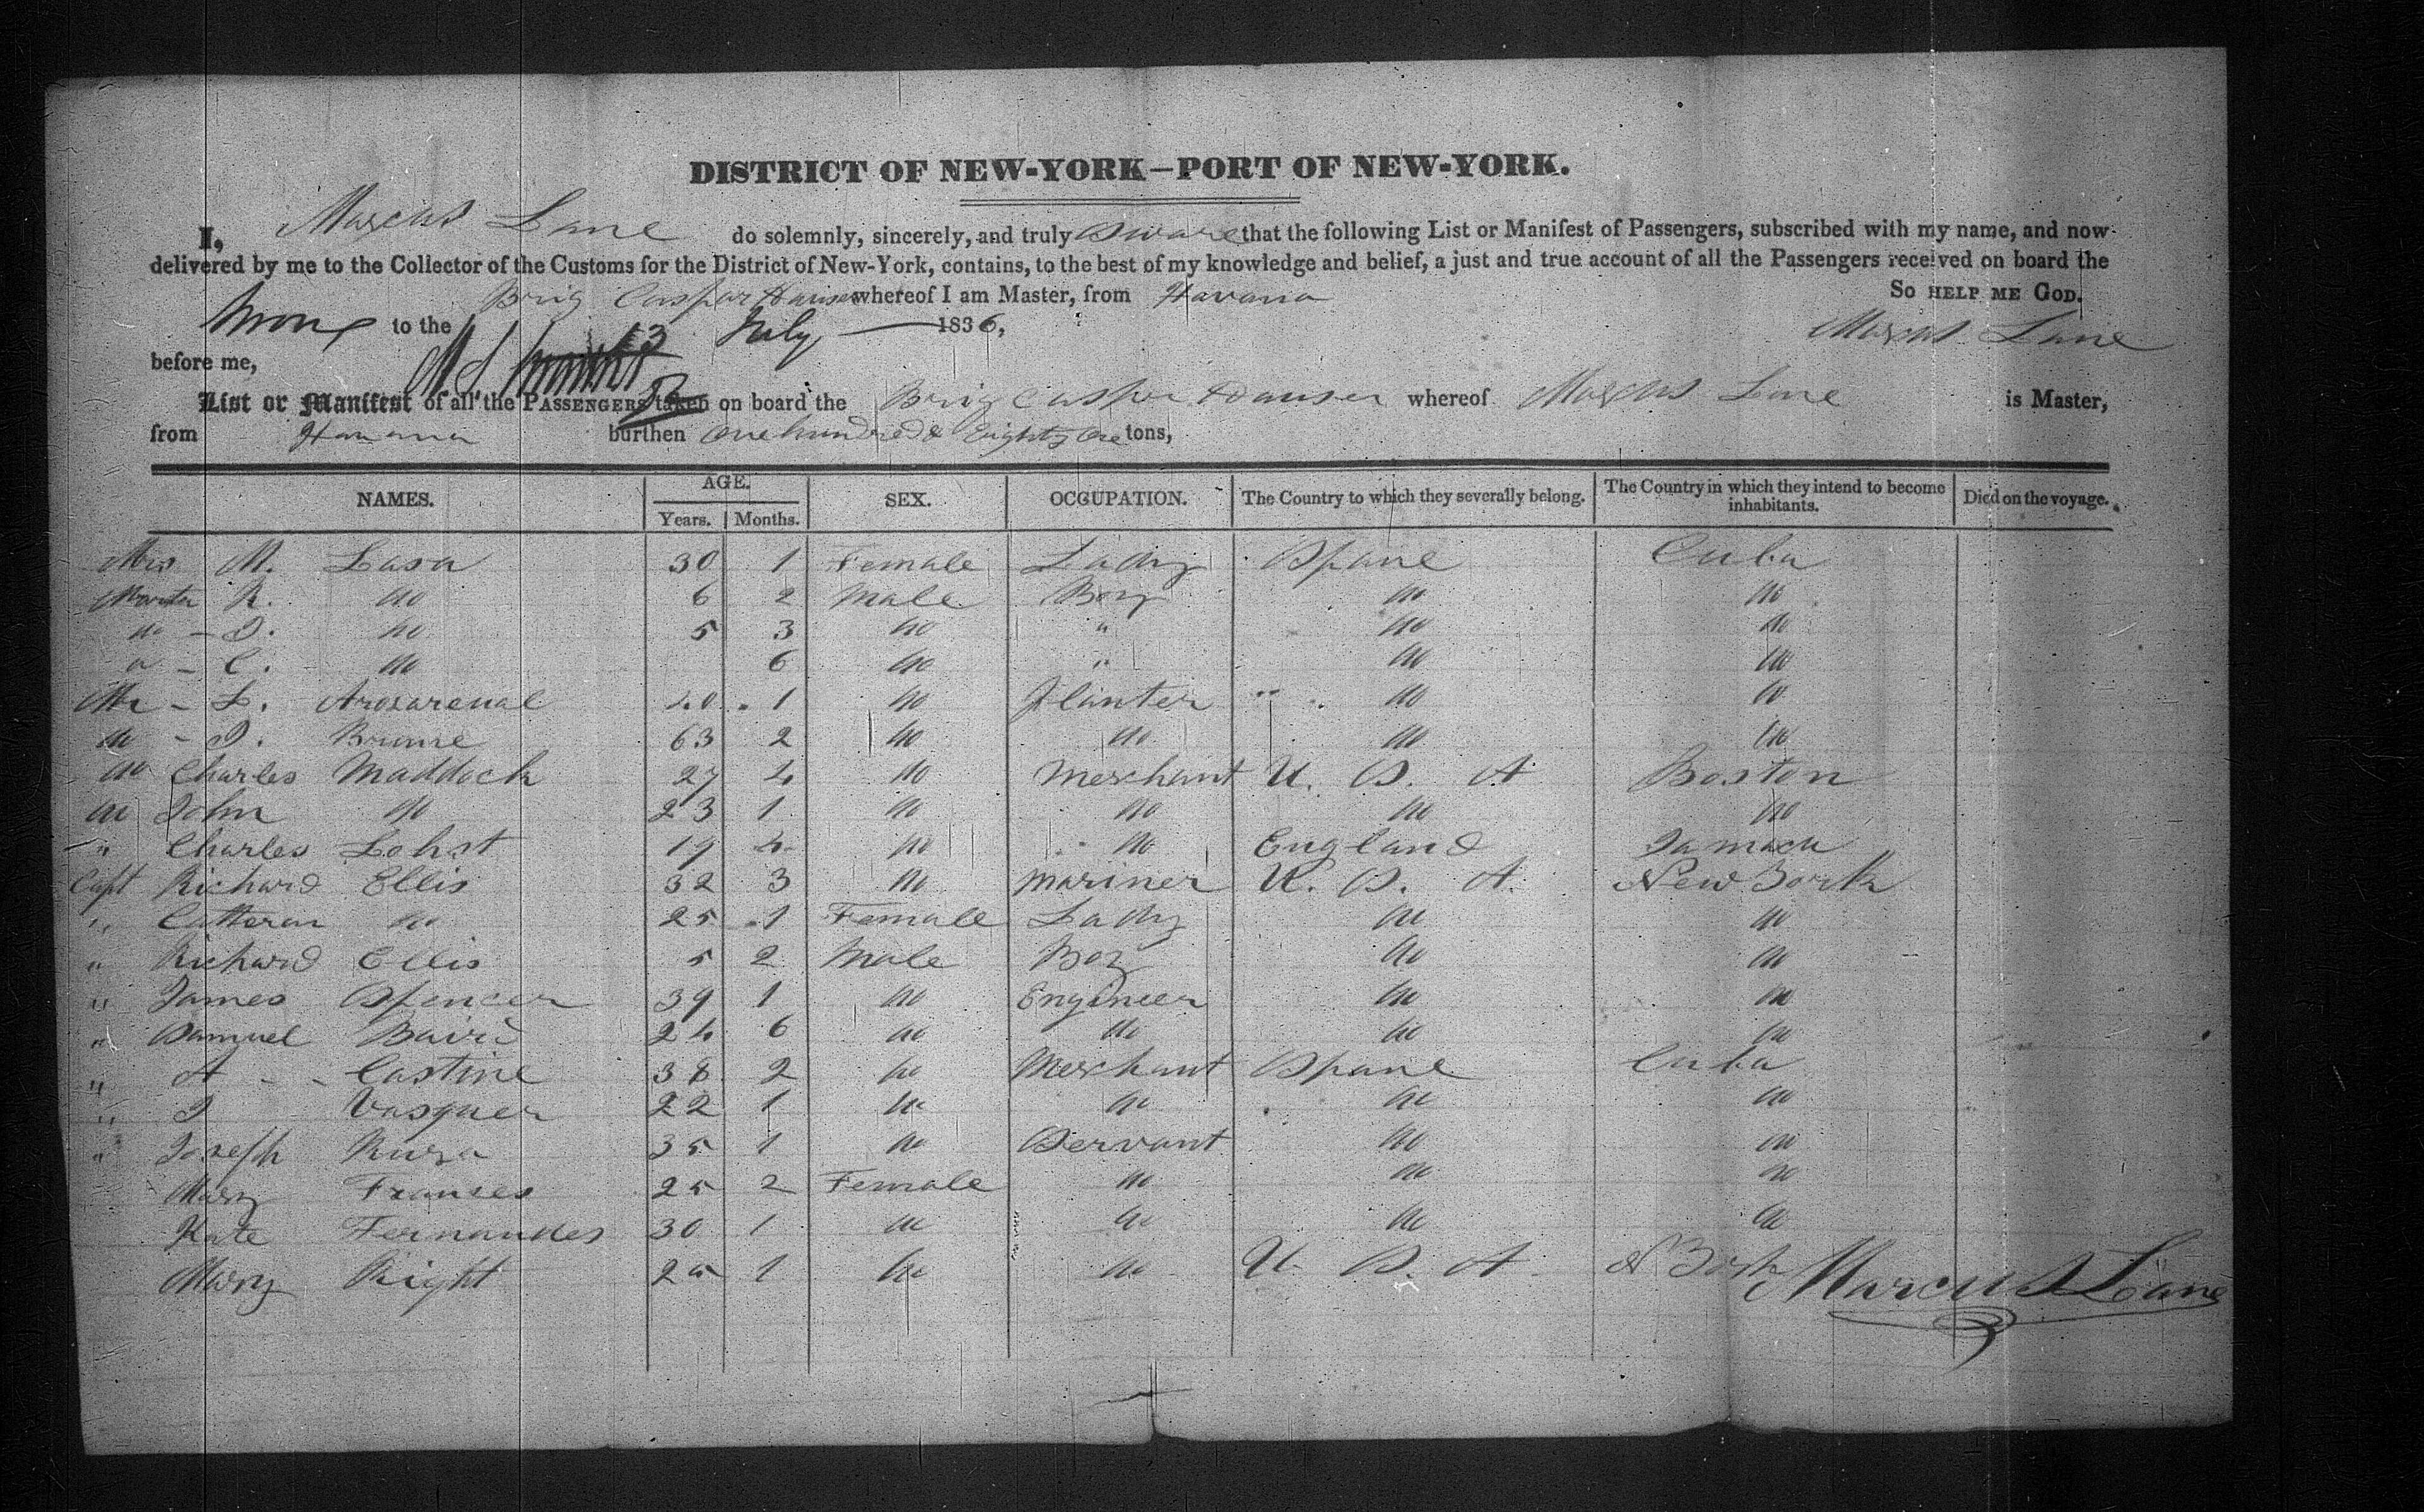 DISTRICT OF NEW-YORK—PORT OF NEW-YORK.
I, Marcus Lane do solemnly, sincerely, and truly Sware that the following List or Manifest of Passengers, subscribed with my name, and now
delivered by me to the Collector of the Customs for the District of New-York, contains, to the best of my knowledge and belief, a just and true account of all the Passengers received on board the
Brig Caspar Hauser whereof I am Master, from Havana So HELP ME GOD.
to the 13 July 1836, Marcus Lane
before me,
List or Manifest of all the PASSENGERS taken on board the Brig Casper Hauser whereof Marcus Lane is Master,
from Havana burthen One hundred & Eighty One tons,
NAMES. AGE. SEX. OCCUPATION. The Country to which they severally belong. The Country in which they intend to become inhabitants. Died on the voyage.
Years. Months.
Mrs M. Lasa 30 1 Female Lady Spane Cuba
Master R. do 6 2 Male Boy do do
do - J. do 5 3 do " do do
do - C. do 6 do " do do
Mr - L. Arosarenal 40 1 do Planter do do
do - J. 63 2 do do do do
do Charles Maddock 27 4 do Merchant U. S. A Boston
do John do 23 1 do do do do
" Charles Lohst 19 4 do do England Jamaca
Capt Richard Ellis 32 3 do Mariner U. S. A. New York
" Catteran do 25 1 Female Lady do do
" Richard Ellis 5 2 Male Boy do do
" James Spencer 39 1 do Engineer do do
" Samuel Baird 24 6 do do do do
" A - - Castine 38 2 do Merchant Spane Cuba
" J Vasquer 22 1 do do do do
" Joseph 35 1 do Servant do do
Mary Franses 25 2 Female do do do
Kate Fernandes 30 1 do do do do
Mary Right 25 1 do do U. S. A N York
Marcus Lane